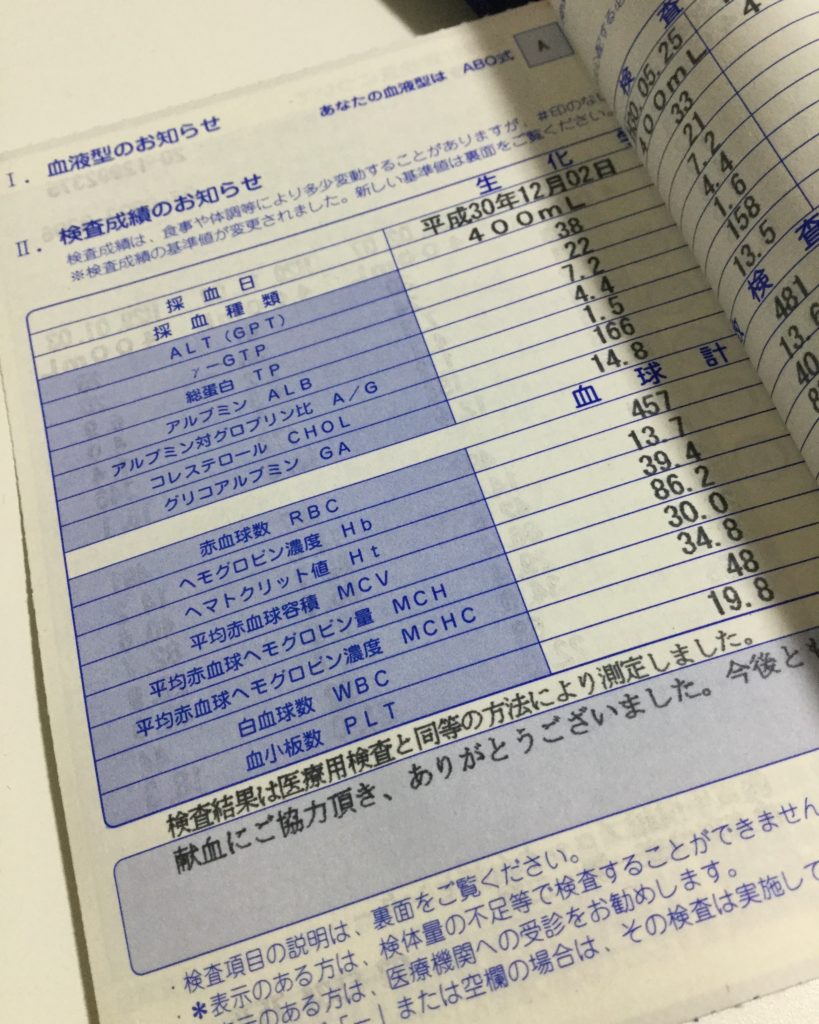 Ⅰ. 血液型のお知らせ
あなたの血液型は ABO式 A
Ⅱ. 検査成績のお知らせ
検査成績は、食事や体調等により多少変動することがありますが、#印のない
※検査成績の基準値が変更されました。新しい基準値は裏面をご覧ください。
生 化
採血日 平成30年12月02日 30.05.25
採血種類 400mL 400mL
ALT(GPT) 38 33
γ-GTP 22 21
総蛋白 TP 7.2 7.2
アルブミン ALB 4.4 4.4
アルブミン対グロブリン比 A/G 1.5 1.6
コレステロール CHOL 166 158
グリコアルブミン GA 14.8 13.5
血 球 計 検 査
赤血球数 RBC 457 481
ヘモグロビン濃度 Hb 13.7 13.6
ヘマトクリット値 Ht 39.4 40
平均赤血球容積 MCV 86.2
平均赤血球ヘモグロビン量 MCH 30.0
平均赤血球ヘモグロビン濃度 MCHC 34.8
白血球数 WBC 48
血小板数 PLT 19.8
検査結果は医療用検査と同等の方法により測定しました。
献血にご協力頂き、ありがとうございました。今後とも
・検査項目の説明は、裏面をご覧ください。
・*表示のある方は、検体量の不足等で検査することができません
表示のある方は、医療機関への受診をお勧めします。
「－」または空欄の場合は、その検査は実施して